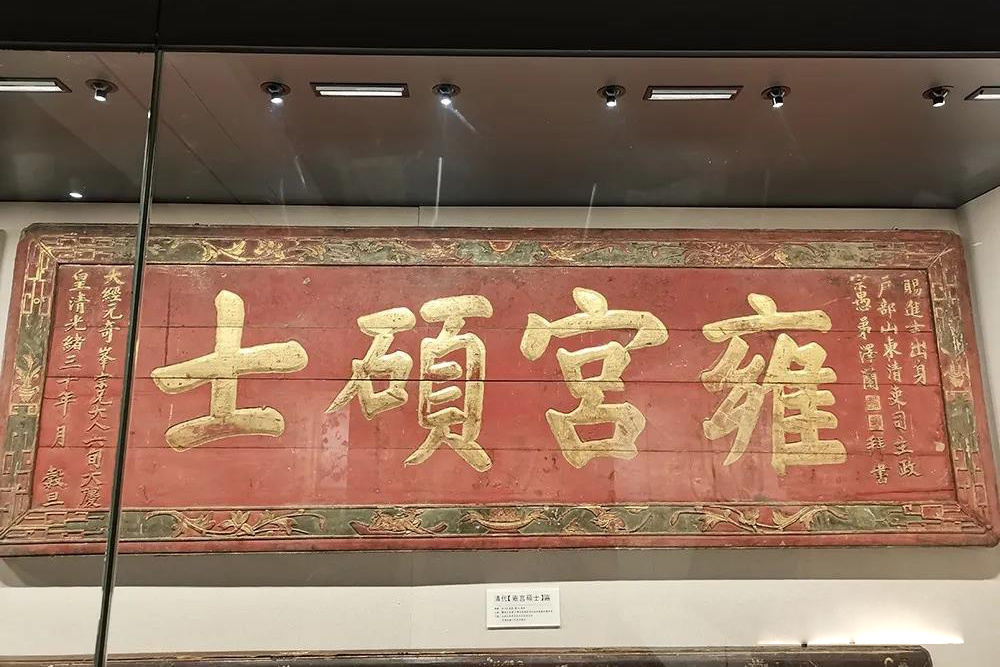 賜進士出身
戶部山東清吏司主政
宗愚弟澤蘭拜書
雍宮碩士
大經元奇峯宗兄大人六旬大慶
皇清光緒三十年 月 穀旦
清代【雍宮碩士】匾